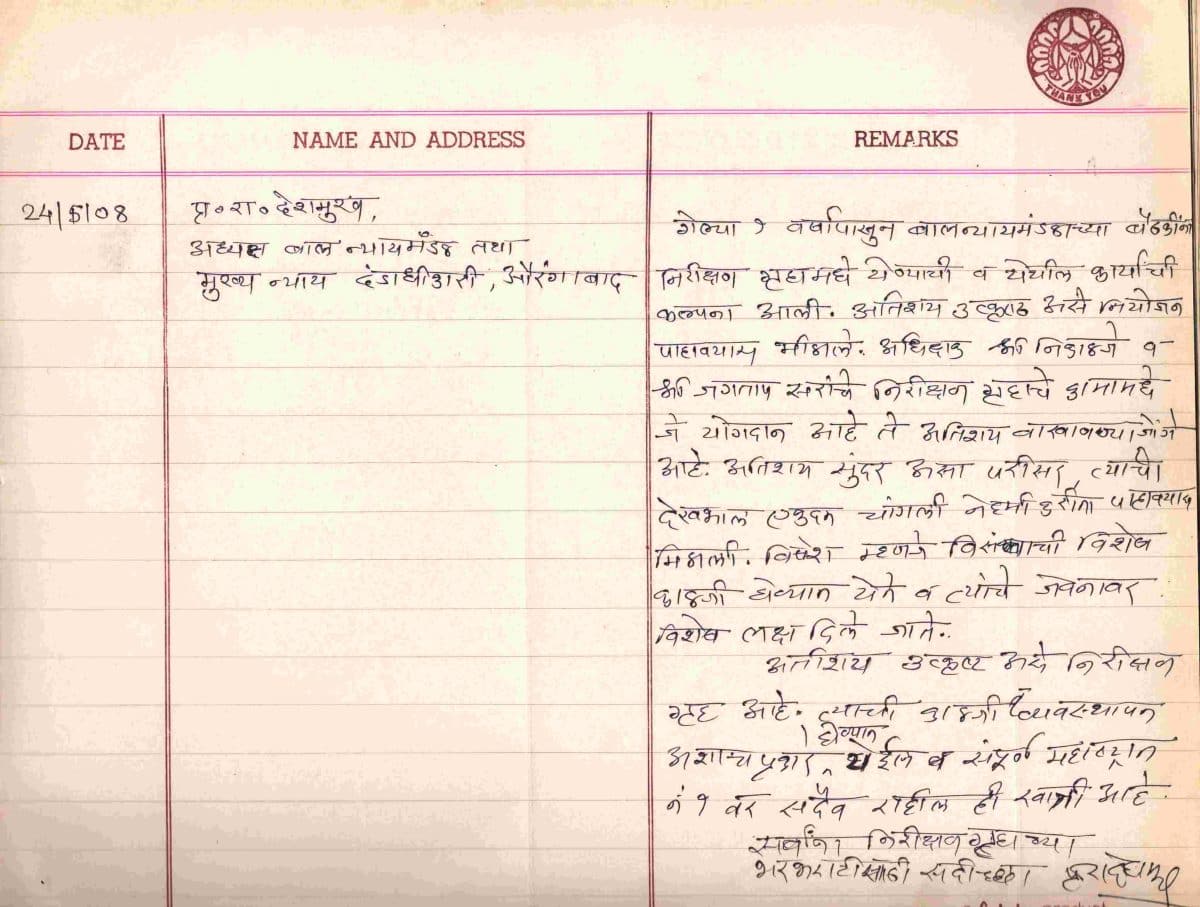 THANK YOU
DATE
NAME AND ADDRESS
REMARKS
24/5/08
प्र॰ रा॰ देशमुख,
अध्यक्ष बाल न्यायमंडळ तथा
मुख्य न्याय दंडाधीकारी, औरंगाबाद
गेल्या १ वर्षापासुन बालन्यायमंडळाच्या बैठकींना
निरीक्षण गृहामधे येण्याची व येथील कार्याची
कल्पना आली. अतिशय उत्कृष्ठ असे नियोजन
पाहावयास मीळाले. अधिक्षक श्री निकाळजे व
श्री जगताप सरांचे निरीक्षण गृहाचे कामामधे
जे योगदान आहे ते अतिशय वाखाणण्याजोगे
आहे. अतिशय सुंदर असा परीसर, त्याची
देखभाल एकुदम चांगली नेहमी करीता पाहावयास
मिळाली. विषेश म्हणजे विसंबाची विशेष
काळजी घेण्यात येते व त्यांचे जेवनावर
विशेष लक्ष दिले जाते.
अतीशय उत्कृष्ट असे निरीक्षण
गृह आहे. त्याची काळजी व व्यवस्थापन
घेण्यात
अशाच प्रकारे येईल व संपूर्ण महाराष्ट्रात
नं १ वर सदैव राहील ही खात्री आहे.
सर्वांना निरीक्षणगृहाच्या
भरभराटीसाठी सदीच्छा